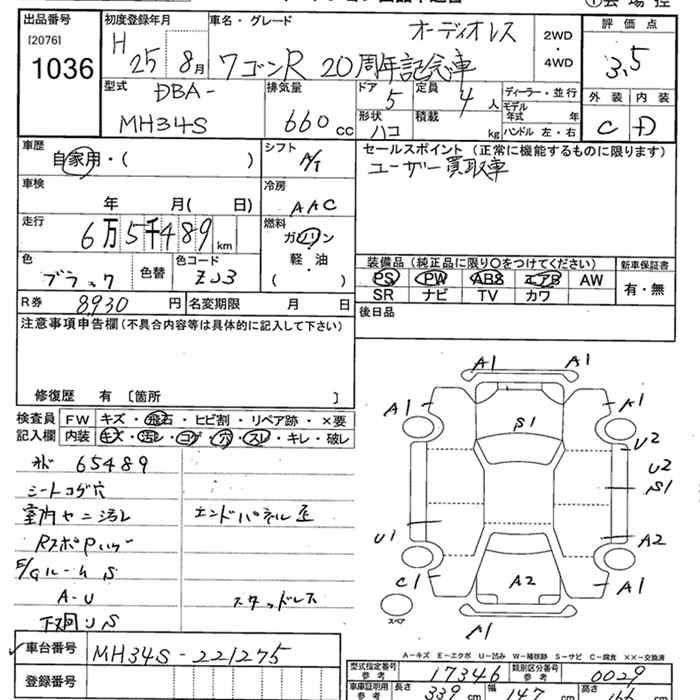 出品番号 初度登録年月 車名・グレード オーディオレス 評価点
[2076] 1036 H 25 8月 ワゴンR 20周年記念車 2WD・4WD 3,5
型式 DBA- MH34S 排気量 660cc ドア 5 定員 4人 ディーラー・並行
形状 ハコ 積載 kg モデル年式 年 ハンドル 左・右
外装 内装
C D
車歴 自家用・( ) シフト A/T
セールスポイント(正常に機能するものに限ります)
ユーザー買取車
車検 年 月( 日) 冷房 AAC
走行 6万5千489km 燃料 ガソリン 軽・油 ( )
色 ブラック 色替 色コード ZJ3
装備品(純正品に限り○をつけてください) 新車保証書
PS PW ABS エアB AW 有・無
SR ナビ TV カワ
R券 8930円 名変期限 月 日
後日品
注意事項申告欄(不具合内容等は具体的に記入して下さい)
修復歴 有 〔箇所 〕
検査員 FW キズ・飛石・ヒビ割・リペア跡・×要
記入欄 内装 キズ・汚レ・コゲ・穴・スレ・キレ・破レ
65489
シートコゲ穴
室内ヤニ汚レ エンドパネル歪
E/Gルーム S
A-U スタッドレス
下回 U S
A1 A1
A1 A1
S1
U2
U2
S1
U1 A2
C1 A2 A1
スペア
A1
車台番号 MH34S-221275
登録番号
A-キズ E-エクボ U-凹み W-補修跡 S-サビ C-腐食 ××-交換済
型式指定番号 参考 17346 類別区分番号 参考 0029
車庫証明用 参考 長さ 339cm 幅 147 高さ